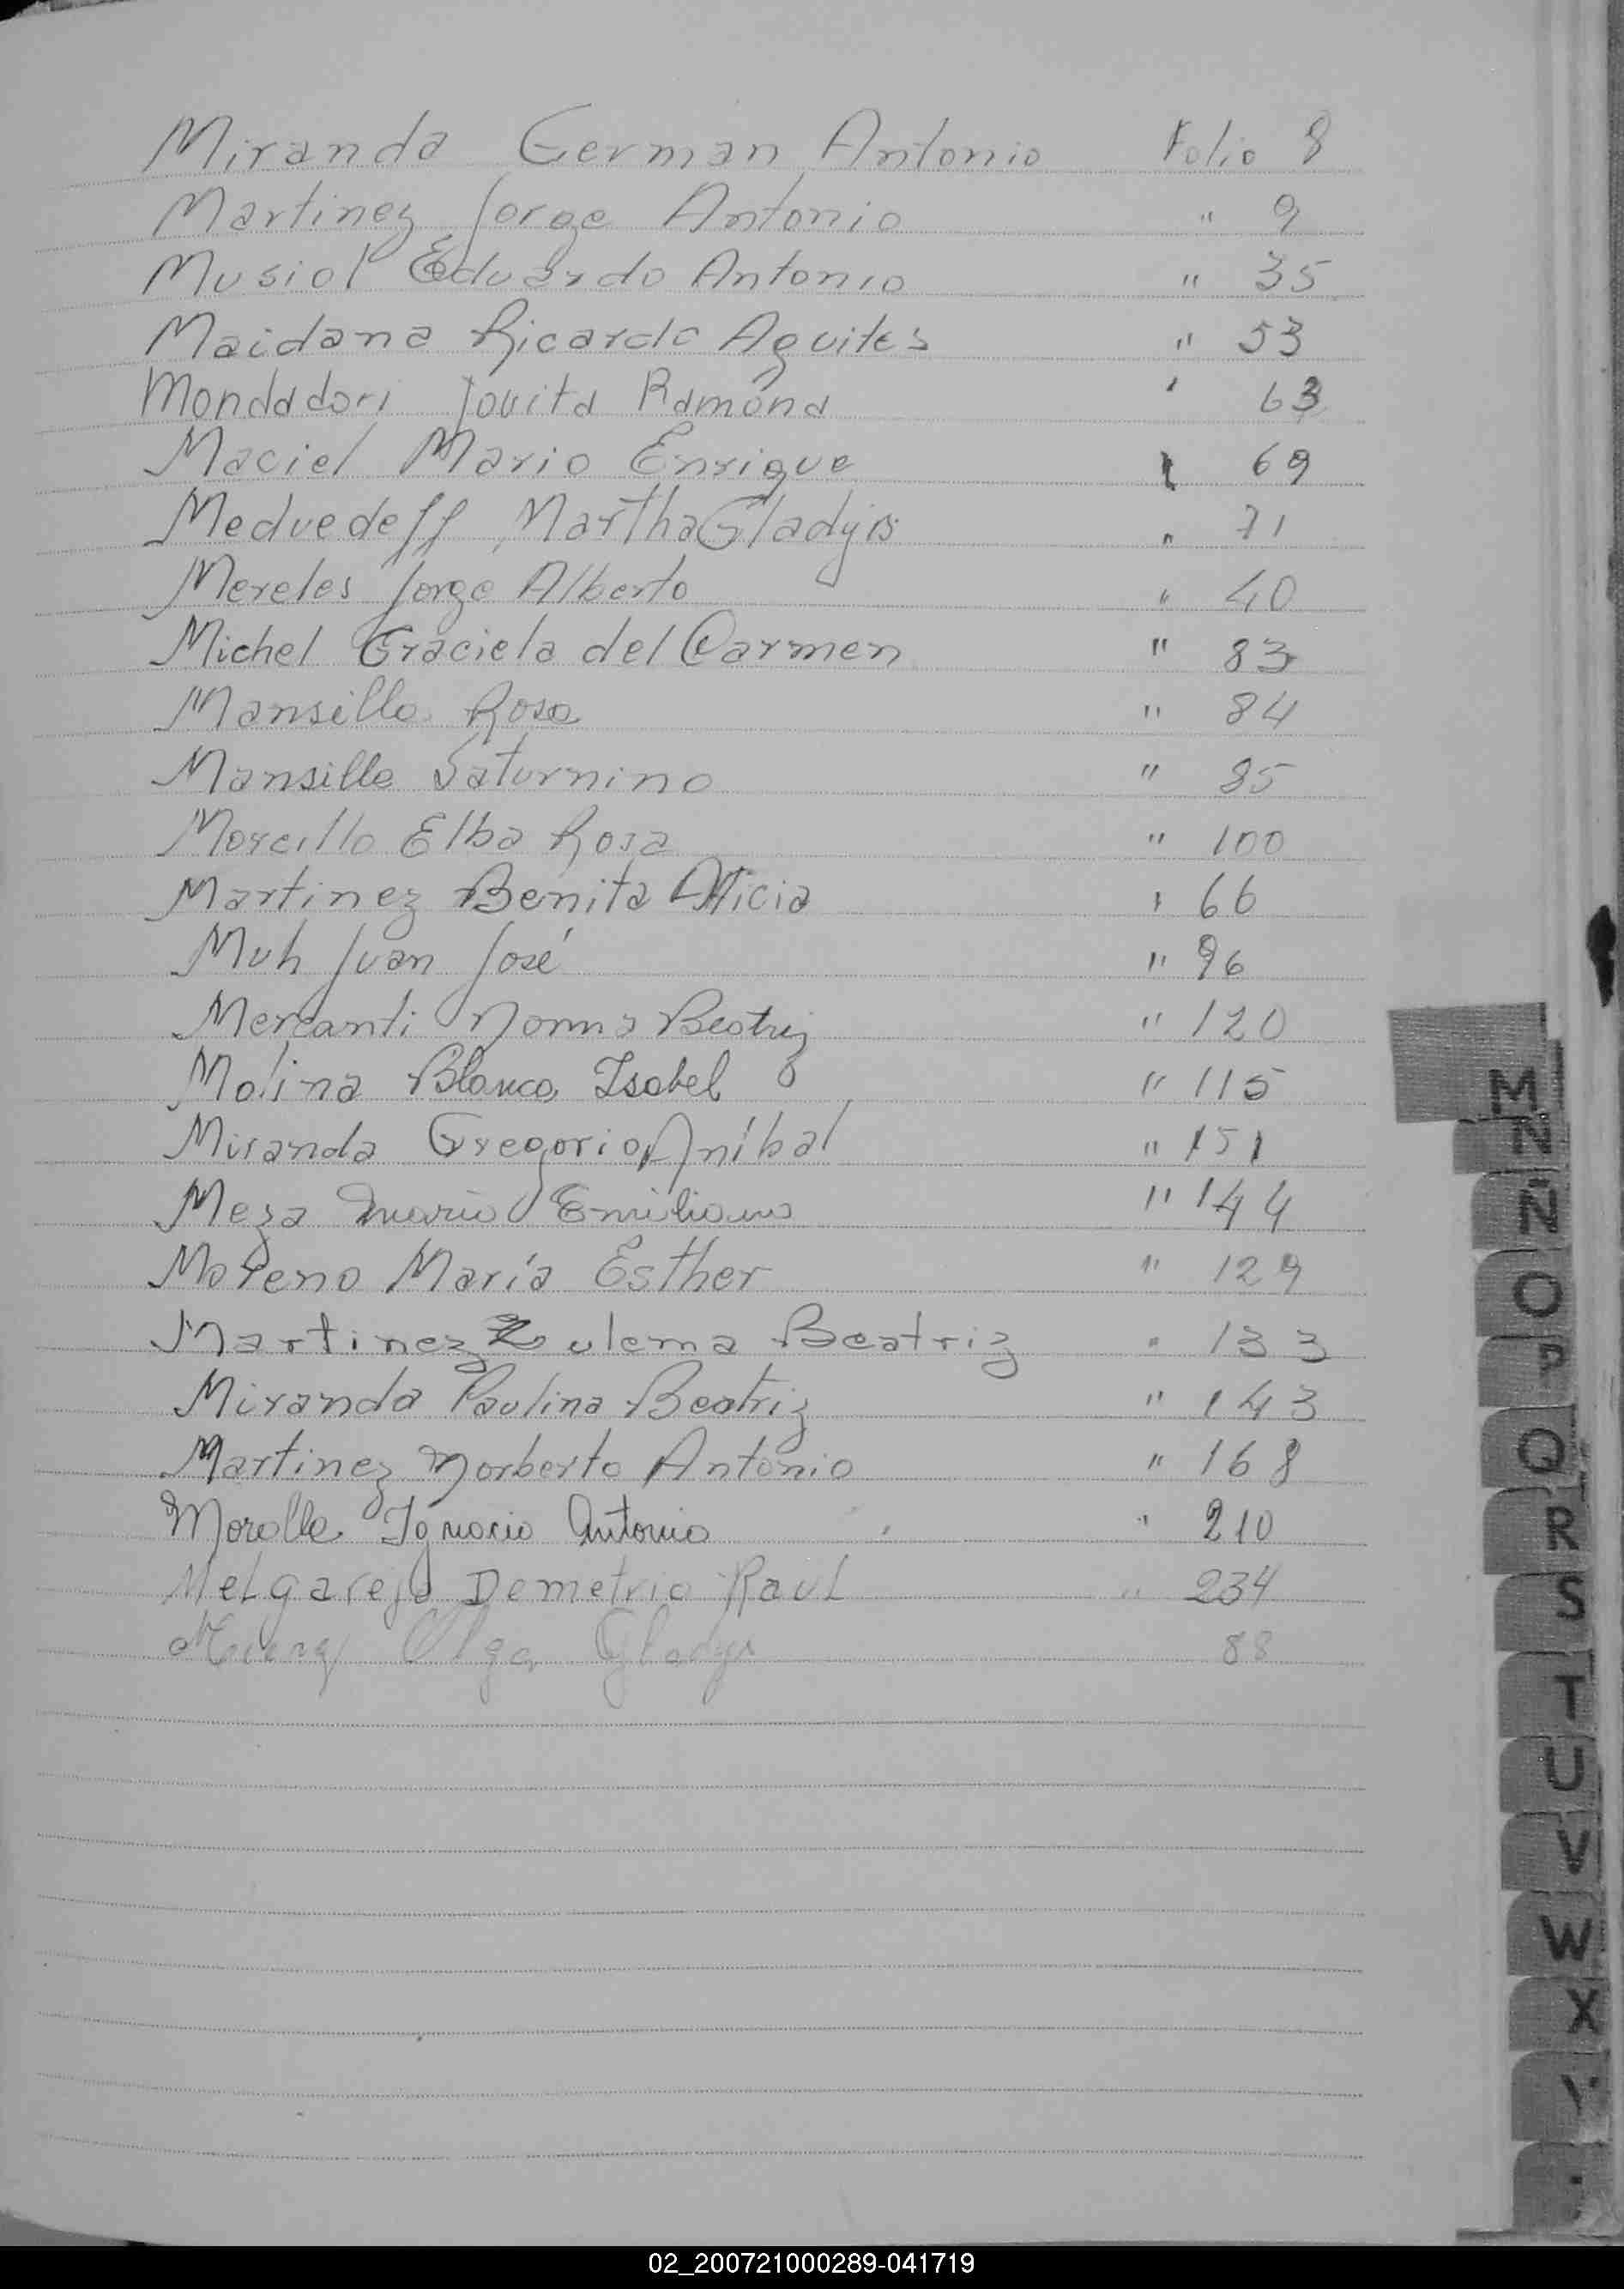 Miranda German Antonio Folio 8
Martinez Jorge Antonio " 9
Musiol Eduardo Antonio " 35
Maidana Ricardo Aquiles " 53
Mondadori Jovita Ramóna ' 63
Maciel Mario Enrique 69
Medvedeff Martha Gladys " 71
Mereles Jorge Alberto " 40
Michel Graciela del Carmen " 83
Mansilla Rosa " 84
Mansilla Saturnino " 85
Morcillo Elba Rosa " 100
Martinez Benita Alicia " 66
Muh Juan José " 96
Mercanti Norma Beatriz " 120
Molina Blanca Isabel " 115
Miranda Gregorio Aníbal " 151
Meza Mario Emiliano " 144
Moreno María Esther " 129
Martinez Zulema Beatriz " 133
Miranda Paulina Beatriz " 143
Martinez Norberto Antonio " 168
Ignacio Antonio " 210
Melgarejo Demetrio Raul " 234
Olga Gladys 88
M
N
Ñ
O
P
Q
R
S
T
U
V
W
X
Y
02_200721000289-041719